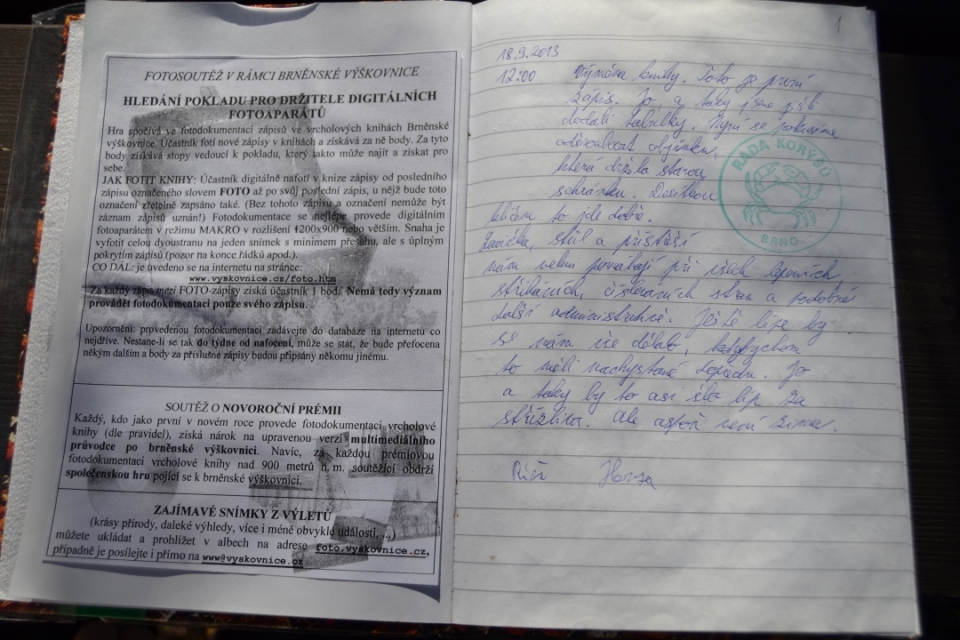 FOTOSOUTĚŽ V RÁMCI BRNĚNSKÉ VÝŠKOVNICE
HLEDÁNÍ POKLADU PRO DRŽITELE DIGITÁLNÍCH
FOTOAPARÁTŮ
Hra spočívá ve fotodokumentaci zápisů ve vrcholových knihách Brněnské
výškovnice. Účastník fotí nové zápisy v knihách a získává za ně body. Za tyto
body získává stopy vedoucí k pokladu, který takto může najít a získat pro
sebe.
JAK FOTIT KNIHY: Účastník digitálně nafotí v knize zápisy od posledního
zápisu označeného slovem FOTO až po svůj poslední zápis, u nějž bude toto
označení zřetelně zapsáno také. (Bez tohoto zápisu a označení nemůže být
záznam zápisů uznán!) Fotodokumentace se nejlépe provede digitálním
fotoaparátem v režimu MAKRO v rozlišení 1200x900 nebo větším. Snaha je
vyfotit celou dvoustranu na jeden snímek s minimem přesahu, ale s úplným
pokrytím zápisů (pozor na konce řádků apod.).
CO DÁL: je uvedeno se na internetu na stránce:
www.vyskovnice.cz/foto.htm
Za každý zápis mezi FOTO-zápisy získá účastník 1 bod. Nemá tedy význam
provádět fotodokumentaci pouze svého zápisu.
Upozornění: provedenou fotodokumentaci zadávejte do databáze na internetu co
nejdříve. Nestane-li se tak do týdne od nafocení, může se stát, že bude přefocena
někým dalším a body za příslušné zápisy budou připsány někomu jinému.
SOUTĚŽ O NOVOROČNÍ PRÉMII
Každý, kdo jako první v novém roce provede fotodokumentaci vrcholové
knihy (dle pravidel), získá nárok na upravenou verzi multimediálního
průvodce po brněnské výškovnici. Navíc, za každou prémiovou
fotodokumentaci vrcholové knihy nad 900 metrů n. m. soutěžící obdrží
společenskou hru pojící se k brněnské výškovnici.
ZAJÍMAVÉ SNÍMKY Z VÝLETŮ
(krásy přírody, daleké výhledy, více i méně obvyklé události, ...)
můžete ukládat a prohlížet v albech na adrese foto.vyskovnice.cz,
případně je posílejte i přímo na www@vyskovnice.cz
1
18.9.2013
12:00 Výměna knihy. Toto je první
zápis. Jo, a taky jsme zde
dodali tabulky. Nyní se pokusíme
odšroubovat objímku,
která držela starou
schránku. Dvoitou
klíčem to jde dobře.
Lavička, stůl a přístřeší
nám velmi pomáhají při všech lepeních
stříháních, číslováních stran a podobné
další administrativě. Ještě lépe by
se nám vše dělalo, kdybychom
to měli nachystané dopředu. Jo
a taky by to asi šlo líp za
Ale aspoň není zima.
Honza
RADA KORÝŠŮ
BRNO